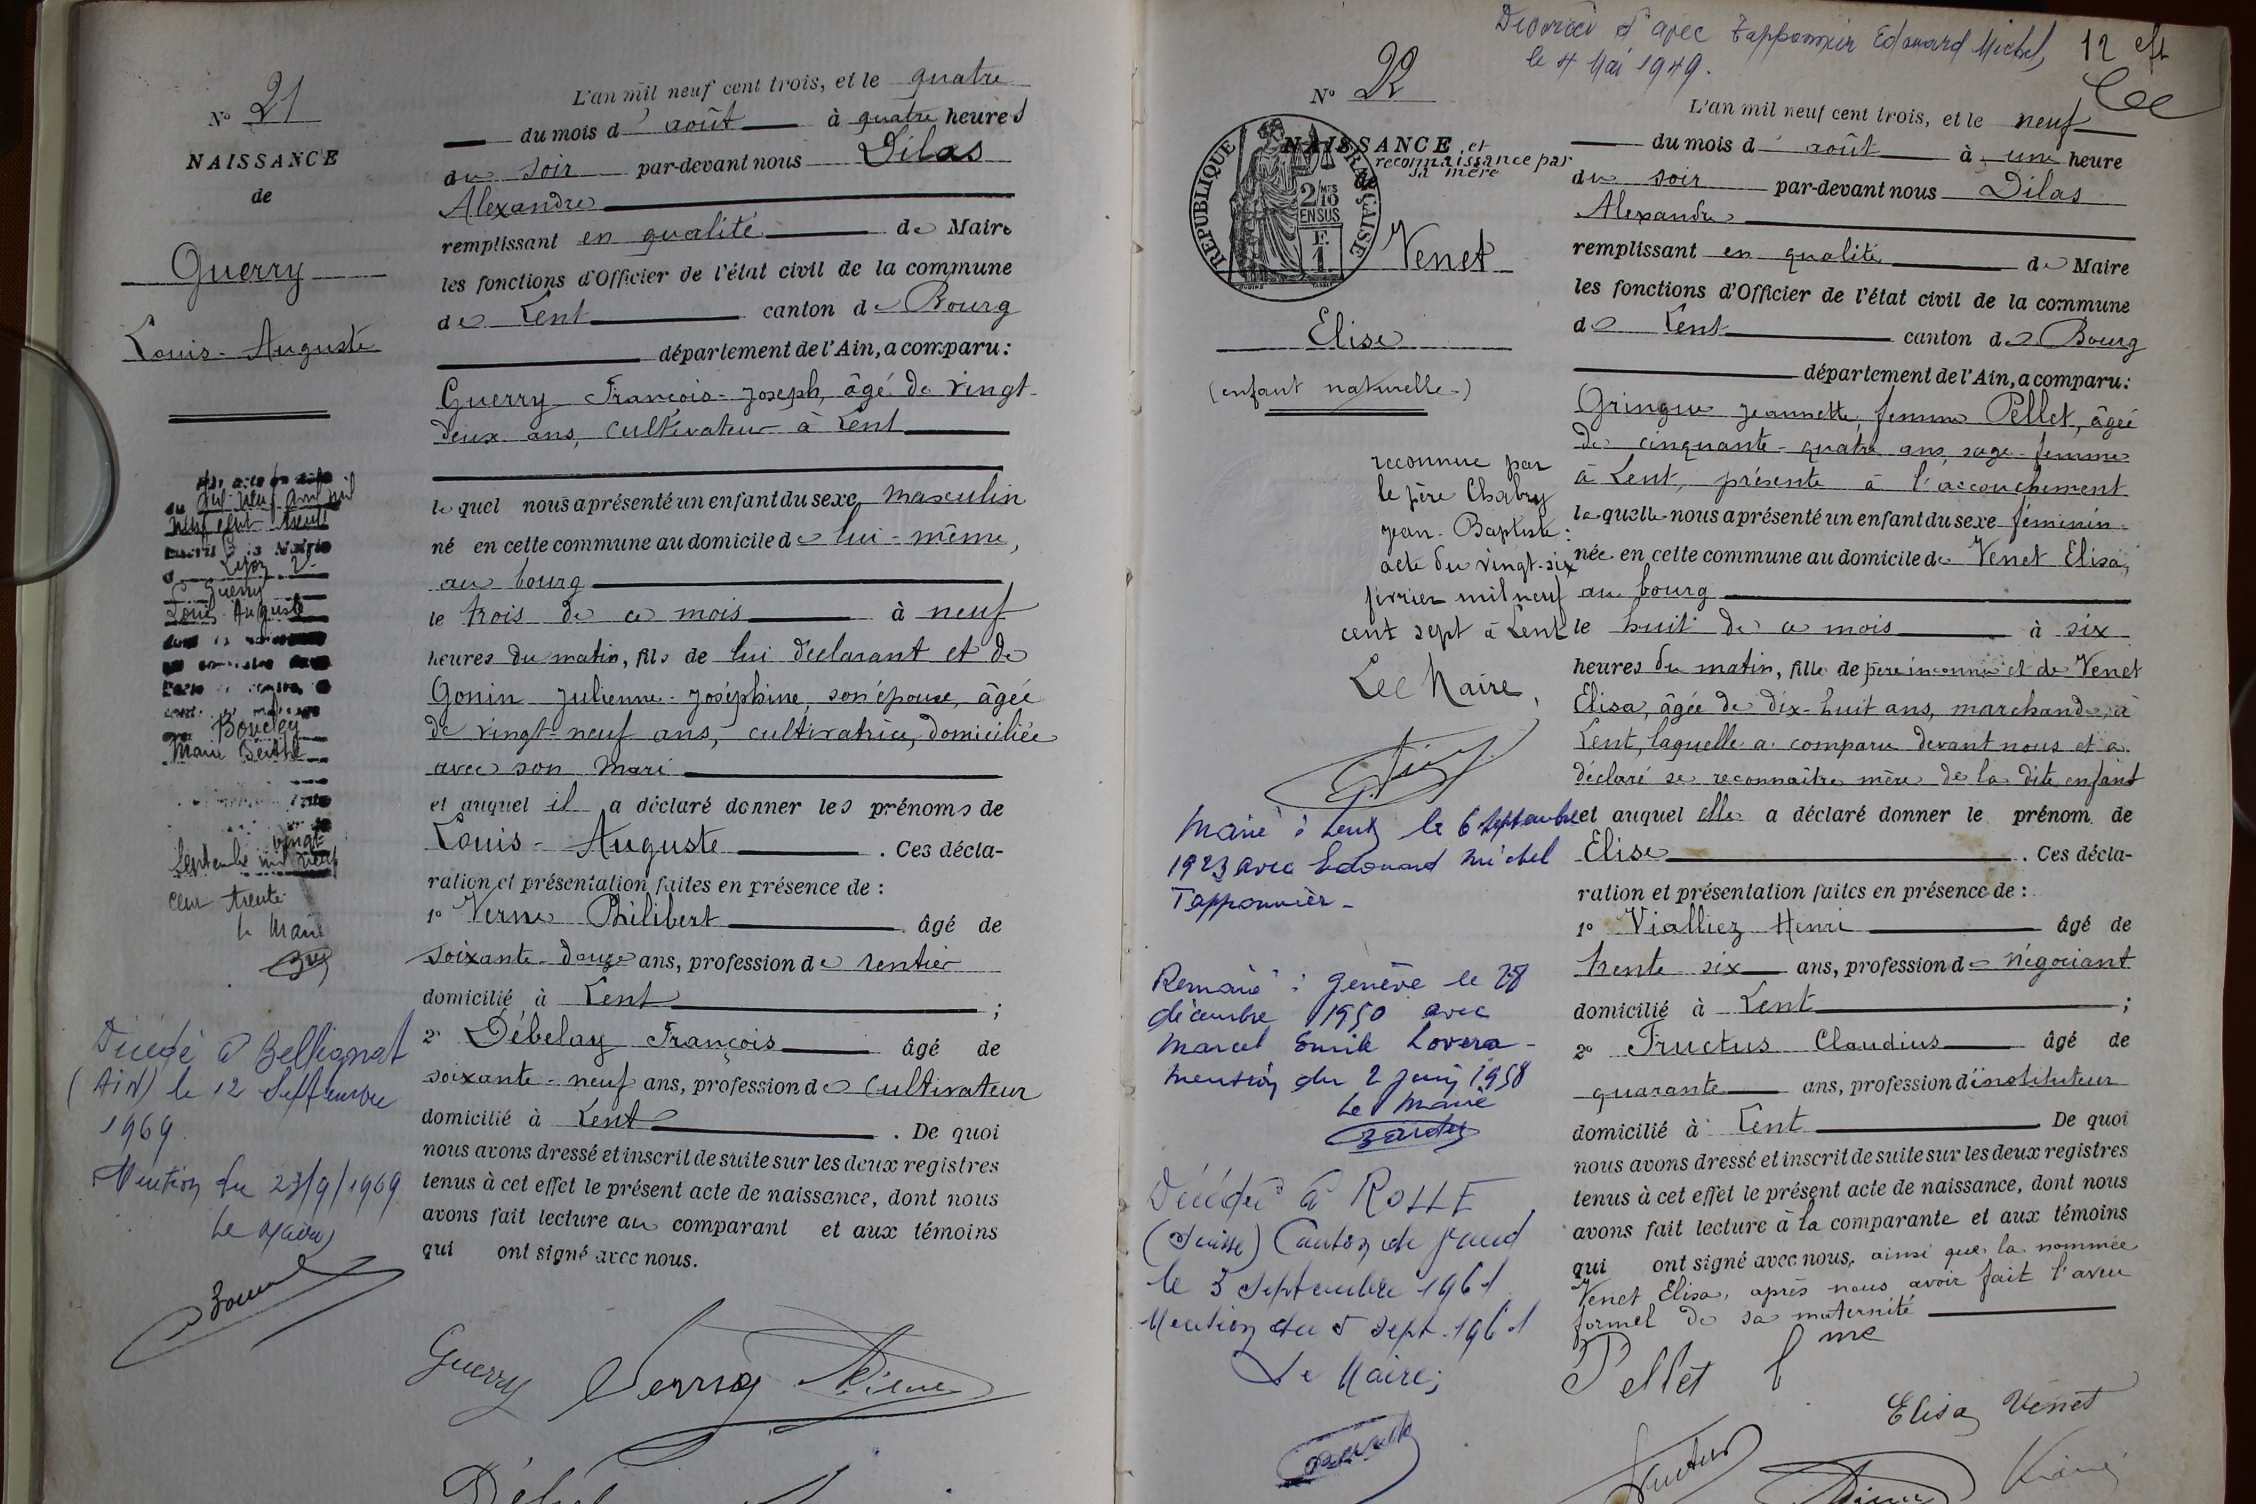 N° 21
NAISSANCE
de
Guerry
Louis-Auguste
L'an mil neuf cent trois, et le quatre
du mois d'août à quatre heures
du soir par-devant nous Dilas
Alexandre
remplissant en qualité de Maire
les fonctions d'Officier de l'état civil de la commune
de Lent canton de Bourg
département de l'Ain, a comparu:
Guerry François-Joseph, âgé de vingt-
deux ans, cultivateur à Lent
lequel nous a présenté un enfant du sexe masculin
né en cette commune au domicile de lui-même,
au bourg
le trois de ce mois à neuf
heures du matin, fils de lui déclarant et de
Gonin Julienne-Joséphine, son épouse, âgée
de vingt-neuf ans, cultivatrice, domiciliée
avec son mari
et auquel il a déclaré donner les prénoms de
Louis-Auguste. Ces décla-
ration et présentation faites en présence de:
1° Verne Philibert âgé de
soixante-douze ans, profession de rentier
domicilié à Lent;
2° Débelay François âgé de
soixante-neuf ans, profession de cultivateur
domicilié à Lent. De quoi
nous avons dressé et inscrit de suite sur les deux registres
tenus à cet effet le présent acte de naissance, dont nous
avons fait lecture au comparant et aux témoins
qui ont signé avec nous.
Guerry
neuf cent trente
Guerry
Louis Auguste
Marie Berthe
vingt
Septembre mil neuf
cent trente
le Maire
Décédé à Bellignat
(AIN) le 12 Septembre
1969.
Mention du 23/9/1969
Le Maire
Divorcée d'avec Tapponnier Edouard Michel,
le 4 Mai 1949.
12
N° 22
NAISSANCE et
reconnaissance par
sa mère
de
REPUBLIQUE FRANÇAISE
2/10
EN SUS
F.
1
Venet
Elise
(enfant naturelle-)
reconnue par
le père Chabry
Jean-Baptiste:
acte du vingt-six
février mil neuf
cent sept à Lent
Le Maire,
Marié à Lent le 6 septembre
1923 avec Edouard Michel
Tapponnier-
Remarié à Genève le 28
décembre 1950 avec
Marcel Emile Lovera-
Mention du 2 juin 1958
Le Maire
Décédée à ROLLE
(Suisse) Canton de Vaud
le 3 Septembre 1961
Mention du 5 sept. 1961
Le Maire;
L'an mil neuf cent trois, et le neuf
du mois d'août à une heure
du soir par-devant nous Dilas
Alexandre
remplissant en qualité de Maire
les fonctions d'Officier de l'état civil de la commune
de Lent canton de Bourg
département de l'Ain, a comparu:
Gringue Jeannette, femme Pellet, âgée
de cinquante-quatre ans, sage-femme
à Lent, présente à l'accouchement
laquelle nous a présenté un enfant du sexe féminin
née en cette commune au domicile de Venet Elisa,
au bourg
le huit de ce mois à six
heures du matin, fille de père inconnu et de Venet
Elisa, âgée de dix-huit ans, marchande, à
Lent, laquelle a comparu devant nous et a
déclaré se reconnaître mère de la dite enfant
et auquel elle a déclaré donner le prénom de
Elise. Ces décla-
ration et présentation faites en présence de:
1° Vialliez Henri âgé de
trente six ans, profession de négociant
domicilié à Lent;
2° Fructus Claudius âgé de
quarante ans, profession d'instituteur
domicilié à Lent De quoi
nous avons dressé et inscrit de suite sur les deux registres
tenus à cet effet le présent acte de naissance, dont nous
avons fait lecture à la comparante et aux témoins
qui ont signé avec nous, ainsi que la nommée
Venet Elisa, après nous avoir fait l'aveu
formel de sa maternité
Pellet fme
Elisa Venet
Fructus